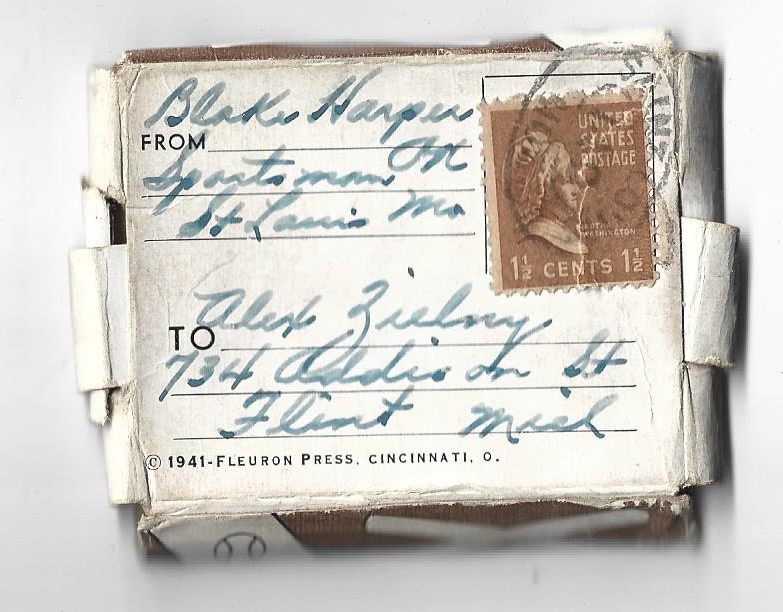 Blake Harper
FROM
Sportsman Pk
St Louis Mo
UNITED
STATES
POSTAGE
MARTHA
WASHINGTON
1½ CENTS 1½
Alex Zielny
TO
734 Addison St
Flint Mich
© 1941-FLEURON PRESS, CINCINNATI, O.